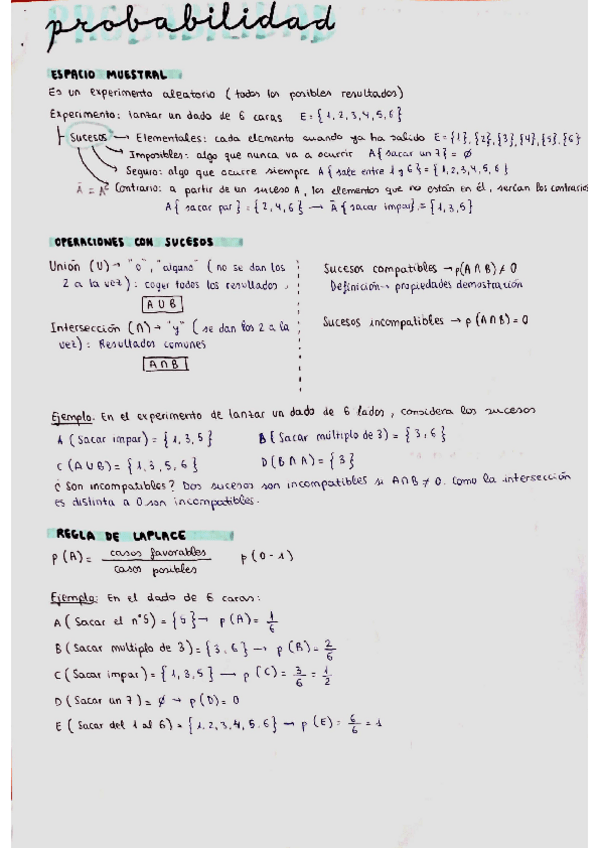 probabilidad
ESPACIO MUESTRAL
Es un experimento aleatorio (todos los posibles resultados)
Experimento: lanzar un dado de 6 caras E = {1, 2, 3, 4, 5, 6}
Sucesos → Elementales: cada elemento cuando ya ha salido E = {1}, {2}, {3}, {4}, {5}, {6}
Imposibles: algo que nunca va a ocurrir A {sacar un 7} = ∅
Seguro: algo que ocurre siempre A {sale entre 1 y 6} = {1, 2, 3, 4, 5, 6}
Ā = Aᶜ Contrario: a partir de un suceso A, los elementos que no están en él, serían los contrarios
A {sacar par} = {2, 4, 6} → Ā {sacar impar} = {1, 3, 5}
OPERACIONES CON SUCESOS
Unión (U) → "o", "alguno" (no se dan los
2 a la vez): coger todos los resultados.
A U B
Intersección (∩) → "y" (se dan los 2 a la
vez): Resultados comunes
A ∩ B
Sucesos compatibles → p(A ∩ B) ≠ 0
Definición → propiedades demostración
Sucesos incompatibles → p(A ∩ B) = 0
Ejemplo. En el experimento de lanzar un dado de 6 lados, considera los sucesos
A (Sacar impar) = {1, 3, 5} B (Sacar múltiplo de 3) = {3, 6}
C (A U B) = {1, 3, 5, 6} D (B ∩ A) = {3}
¿Son incompatibles? Dos sucesos son incompatibles si A ∩ B ≠ 0. Como la intersección
es distinta a 0 son incompatibles.
REGLA DE LAPLACE
p(A) = casos favorables / casos posibles p(0-1)
Ejemplo: En el dado de 6 caras:
A (Sacar el nº5) = {5} → p(A) = 1/6
B (Sacar multiplo de 3) = {3, 6} → p(B) = 2/6
C (Sacar impar) = {1, 3, 5} → p(C) = 3/6 = 1/2
D (Sacar un 7) = ∅ → p(D) = 0
E (Sacar del 1 al 6) = {1, 2, 3, 4, 5, 6} → p(E) = 6/6 = 1